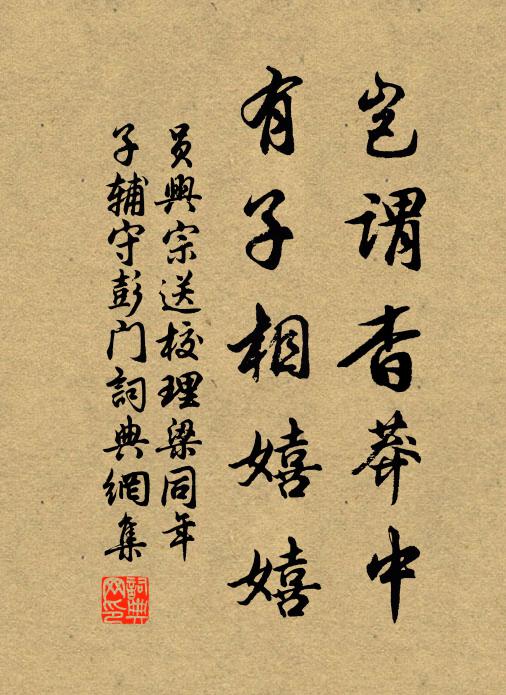 岂谓杳莽中
有子相嬉嬉
员兴宗送校理梁同年
子辅守彭门词典网集
词典网印